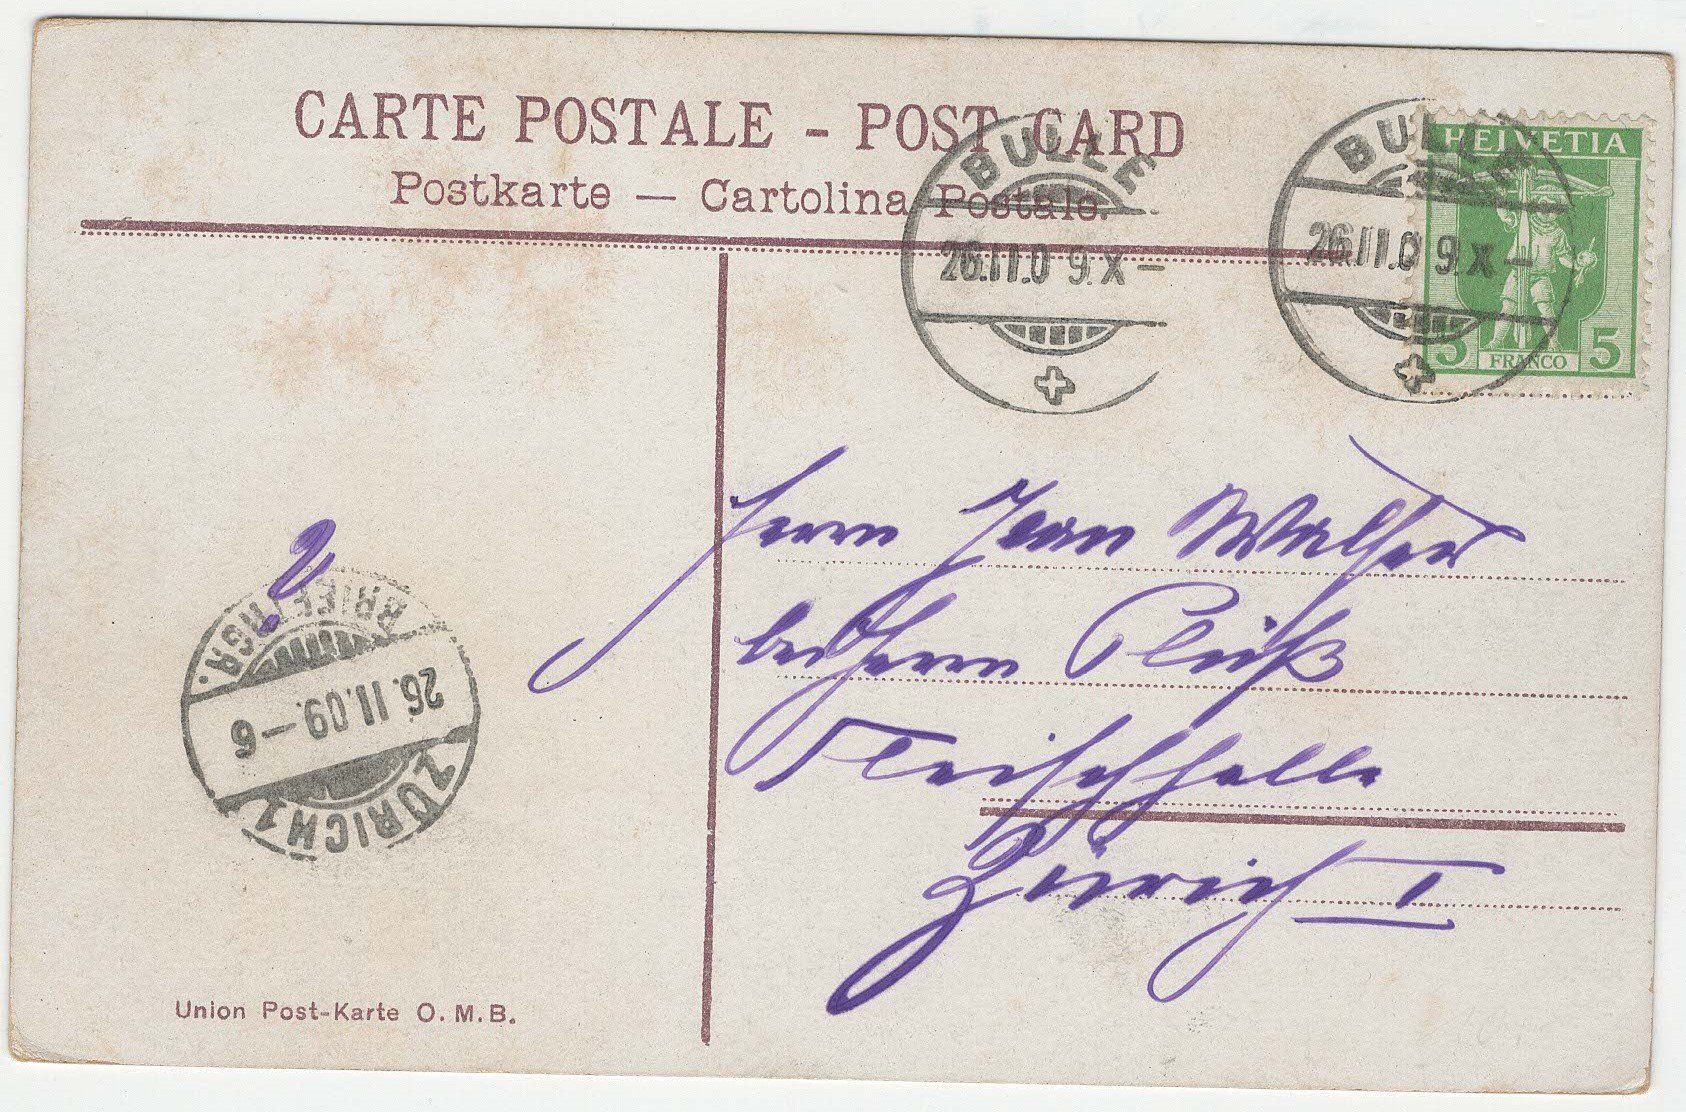 CARTE POSTALE - POST CARD
Postkarte — Cartolina Postale.
BULLE
26.II.09.X–
BULLE
26.II.09.X–
HELVETIA
5 FRANCO 5
Herrn Jean Walther
bei Herrn Plüß
Fleischhalle
Zürich I
?
BRIEFTRGR.
26.II.09.–6
ZÜRICH 1
Union Post-Karte O.M.B.